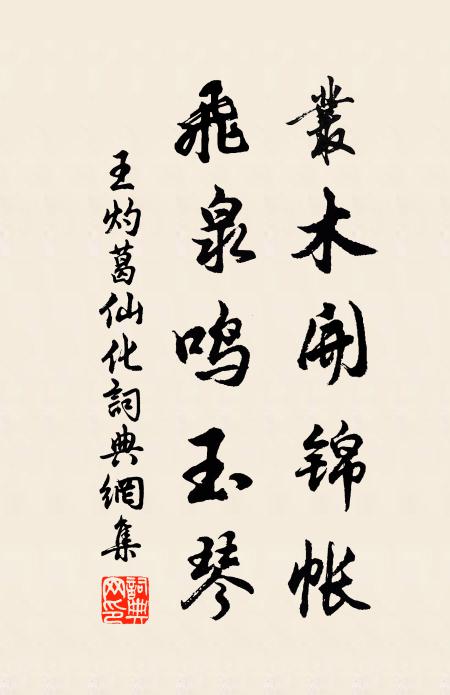 叢木開錦帳
飛泉鳴玉琴
王灼葛仙化詞典網集
詞典網印